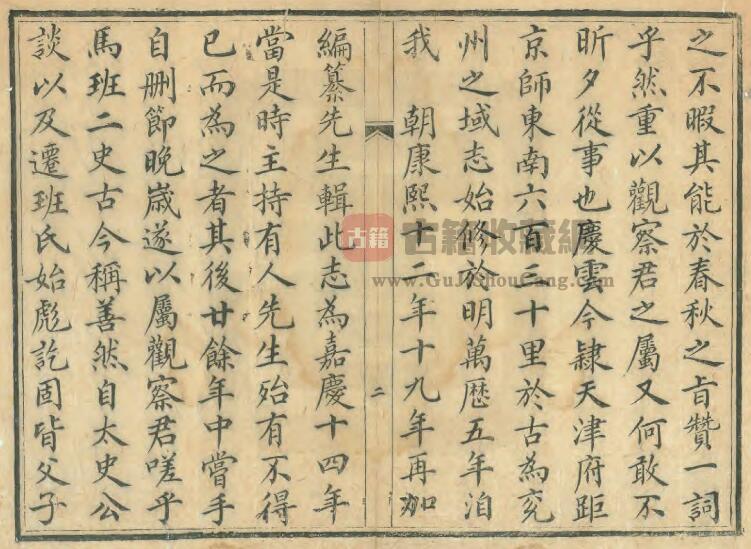 之不暇其能於春秋之旨贊一詞
乎然重以觀察君之屬又何敢不
昕夕從事也慶雲今隸天津府距
京師東南六百三十里於古為兖
州之域志始修於明萬歷五年洎
我 朝康熙十二年十九年再加
二
編纂先生輯此志為嘉慶十四年
當是時主持有人先生殆有不得
已而為之者其後廿餘年中嘗手
自刪節晚歲遂以屬觀察君嗟乎
馬班二史古今稱善然自太史公
談以及遷班氏始彪訖固皆父子
古籍
古籍收藏網
www.GuJiShouCang.com